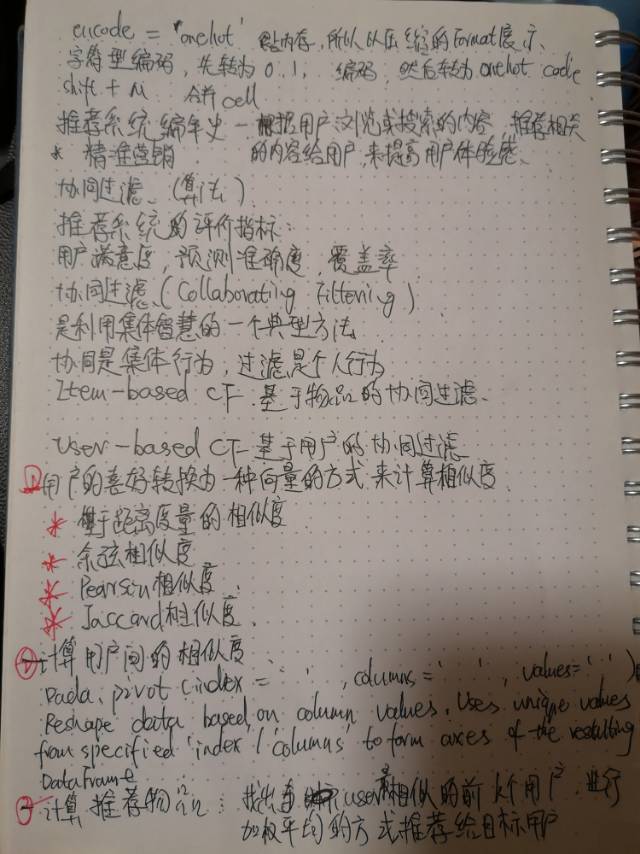 encode = 'onehot' 占内存,所以以压缩的format展示、
字符型编码,先转为0.1, 编码,然后转为onehot code
shift + M 合并cell
推荐系统编年史 - 根据用户浏览或搜索的内容,推荐相关
* 精准营销 的内容给用户,来提高用户体验感、
协同过滤、(算法)
推荐系统的评价指标:
用户满意度,预测准确度,覆盖率
协同过滤、(Collaborating Filtering)
是利用集体智慧的一个典型方法
协同是集体行为,过滤是个人行为
Item-based CF 基于物品的协同过滤、
User-based CF 基于用户的协同过滤
用户的喜好转换为一种向量的方式,来计算相似度
* 基于距离度量的相似度
* 余弦相似度
* Pearson相似度、
* Jaccard相似度、
计算用户间的相似度
Dada. pivot (index = ' ', columns = ' ', values = ' ')
Reshape data based on column values. Uses unique values
from specified 'index'/'columns' to form axes of the resulting
DataFrame
计算推荐物品: 找出与 user 相似的前K个用户,进行
加权平均的方式推荐给目标用户